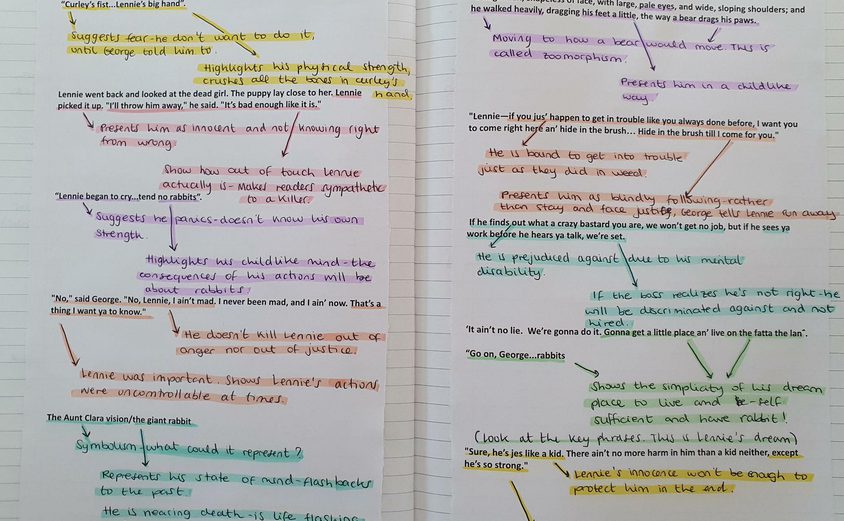 "Curley's fist...Lennie's big hand".
Suggests fear-he don't want to do it,
until George told him to.
Highlights his physical strength,
crushes all the bones in curley's
hand.
Lennie went back and looked at the dead girl. The puppy lay close to her. Lennie
picked it up. "I'll throw him away," he said. "It's bad enough like it is."
Presents him as innocent and not knowing right
from wrong
Show how out of touch Lennie
actually is- makes readers sympathetic
to a killer.
"Lennie began to cry...tend no rabbits".
Suggests he panics-doesn't know his own
strength.
Highlights his childlike mind-the
consequences of his actions will be
about rabbits!
"No," said George. "No, Lennie, I ain't mad. I never been mad, and I ain' now. That's a
thing I want ya to know."
He doesn't kill Lennie out of
anger nor out of justice.
Lennie was important. Shows Lennie's actions
were uncontrollable at times.
The Aunt Clara vision/the giant rabbit
Symbolism-what could it represent?
Represents his state of mind-flashbacks
to the past.
He is nearing death-is life flashing
of face, with large, pale eyes, and wide, sloping shoulders; and
he walked heavily, dragging his feet a little, the way a bear drags his paws.
Moving to how a bear would move. This is
called zoomorphism.
Presents him in a childlike
way.
"Lennie—if you jus' happen to get in trouble like you always done before, I want you
to come right here an' hide in the brush... Hide in the brush till I come for you."
He is bound to get into trouble
just as they did in weed.
Presents him as blindly following-rather
than stay and face justice, George tells Lennie run away
If he finds out what a crazy bastard you are, we won't get no job, but if he sees ya
work before he hears ya talk, we're set.
He is prejudiced against due to his mental
disability.
If the boss realizes he's not right-he
will be discriminated against and not
hired.
'It ain't no lie. We're gonna do it. Gonna get a little place an' live on the fatta the lan".
"Go on, George...rabbits
Shows the simplicity of his dream
place to live and be-self
sufficient and have rabbit!
(Look at the key phrases. This is Lennie's dream)
"Sure, he's jes like a kid. There ain't no more harm in him than a kid neither, except
he's so strong."
Lennie's innocence won't be enough to
protect him in the end.